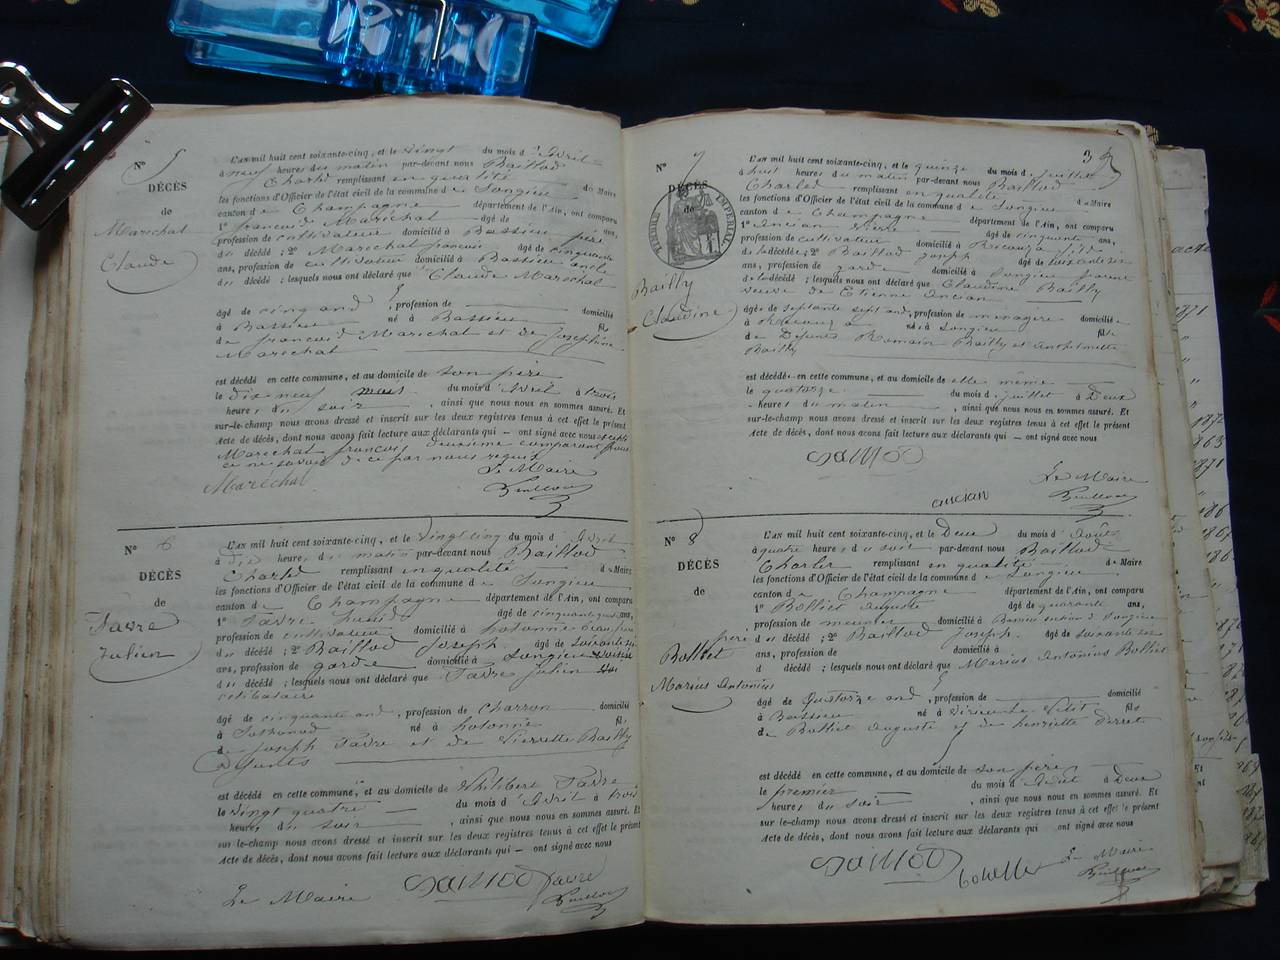 N° 5
DÉCÈS
de
Marechal
Claude
L'AN mil huit cent soixante-cinq, et le vingt du mois d'Avril
à neuf heures du matin par-devant nous Baillod
Charles remplissant en qualité de Maire
les fonctions d'Officier de l'état civil de la commune de Songieu
canton de Champagne département de l'Ain, ont comparu
1° françois Marechal âgé de ans,
profession de cultivateur domicilié à Bassieu père
du décédé ; 2° Marechal françois âgé de cinquante
ans, profession de cultivateur domicilié à Bassieu oncle
du décédé ; lesquels nous ont déclaré que Claude Marechal
âgé de cinq ans , profession de domicilié
à Bassieu né à Bassieu fils
de francois Marechal et de Josephine
Marechal
est décédé en cette commune, et au domicile de son père
le dix neuf du mois d'Avril à trois
heures du soir , ainsi que nous nous en sommes assuré. Et
sur-le-champ nous avons dressé et inscrit sur les deux registres tenus à cet effet le présent
Acte de décès, dont nous avons fait lecture aux déclarants qui — ont signé avec nous
Marechal françois deuxième comparant pour
ce ne savoir de ce par nous requis
Le Maire
Maréchal
N° 6
DÉCÈS
de
Favre
Julien
L'AN mil huit cent soixante-cinq, et le vingt cinq du mois d'Avril
à dix heures du matin par-devant nous Baillod
Charles remplissant en qualité de Maire
les fonctions d'Officier de l'état civil de la commune de Songieu
canton de Champagne département de l'Ain, ont comparu
1° Favre âgé de cinquante ans,
profession de cultivateur domicilié à hotonne
du décédé ; 2° Baillod Joseph âgé de soixante six
ans, profession de garde domicilié à Songieu voisin
du décédé ; lesquels nous ont déclaré que Favre Julien
celibataire
âgé de cinquante ans , profession de Charron domicilié
à né à hotonne fils
de Joseph Favre et de Pierrette Bailly
Défunts
est décédé en cette commune, et au domicile de Philibert Favre
le vingt quatre du mois d'Avril à trois
heures du soir , ainsi que nous nous en sommes assuré. Et
sur-le-champ nous avons dressé et inscrit sur les deux registres tenus à cet effet le présent
Acte de décès, dont nous avons fait lecture aux déclarants qui — ont signé avec nous
Baillod favre
Le Maire
3
N° 7
DÉCÈS
de
TIMBRE IMPÉRIAL
Bailly
Claudine
L'AN mil huit cent soixante-cinq, et le quinze du mois de Juillet
à huit heures du matin par-devant nous Baillod
Charles remplissant en qualité de Maire
les fonctions d'Officier de l'état civil de la commune de Songieu
canton de Champagne département de l'Ain, ont comparu
1° Ancian Pierre âgé de cinquante ans,
profession de cultivateur domicilié à fils
de la décédée ; 2° Baillod Joseph âgé de soixante six
ans, profession de garde domicilié à Songieu parent
de la décédé ; lesquels nous ont déclaré que Claudine Bailly
veuve de Etienne Ancian
âgé de septante sept ans, profession de menagère domicilié
à né à Songieu fille
de Défunts Romain Bailly et Anthelmette
Bailly
est décédé en cette commune, et au domicile de elle même
le quatorze du mois de Juillet à Deux
heures du matin , ainsi que nous nous en sommes assuré. Et
sur-le-champ nous avons dressé et inscrit sur les deux registres tenus à cet effet le présent
Acte de décès, dont nous avons fait lecture aux déclarants qui — ont signé avec nous
Baillod
Le Maire
ancian
N° 8
DÉCÈS
de
Bolliet
Marius Antonius
L'AN mil huit cent soixante-cinq, et le Deux du mois d'Août
à quatre heures du soir par-devant nous Baillod
Charles remplissant en qualité de Maire
les fonctions d'Officier de l'état civil de la commune de Songieu
canton de Champagne département de l'Ain, ont comparu
1° Bolliet Auguste âgé de quarante ans,
profession de meunier domicilié à Bassieu section de Songieu
père du décédé ; 2° Baillod Joseph âgé de soixante six
ans, profession de domicilié à
d décédé ; lesquels nous ont déclaré que Marius Antonius Bolliet
âgé de Quatorze ans , profession de domicilié
à Bassieu né à Virieu le Petit fils
de Bolliet Auguste et de henriette Perret
est décédé en cette commune, et au domicile de son père
le premier du mois d'Août à Deux
heures du soir , ainsi que nous nous en sommes assuré. Et
sur-le-champ nous avons dressé et inscrit sur les deux registres tenus à cet effet le présent
Acte de décès, dont nous avons fait lecture aux déclarants qui ont signé avec nous
Baillod
Le Maire